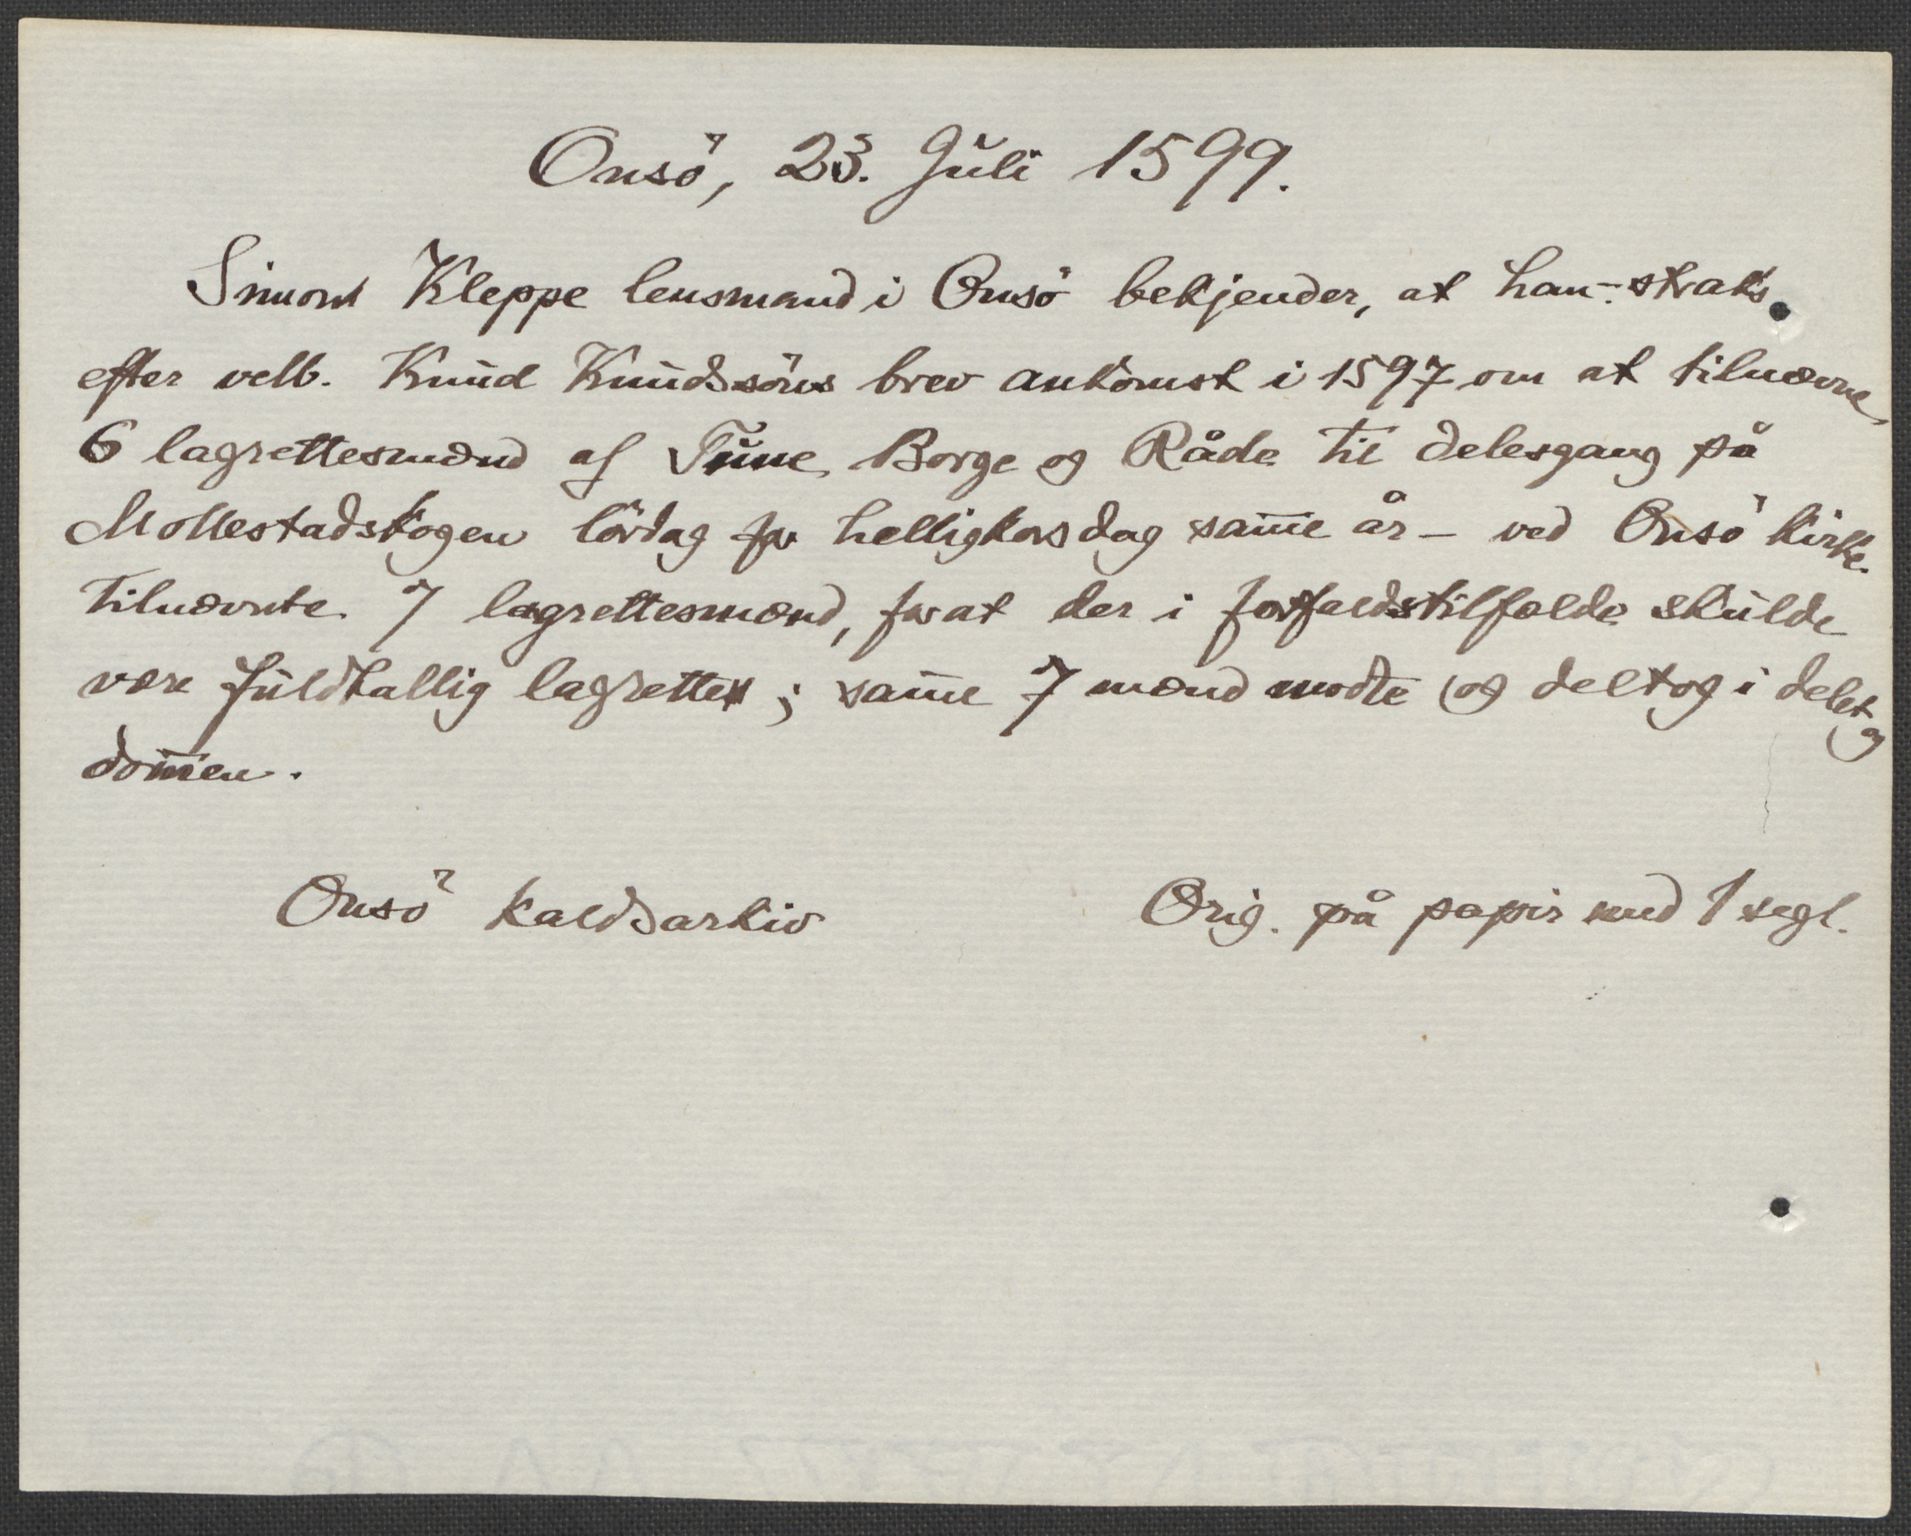 Onsö, 23. Juli 1599.
Simon Kleppe lensmand i Onsö bekjender, at han - straks
efter velb. Knud Knudssöns brev ankomst i 1597 om at tilnævne
6 lagrettesmænd af Tune, Borge og Råde til delesgang på
Mollestadskogen lördag før helligkorsdag sam̅e år - ved Onsö kirke
tilnævnte 7 lagrettesmænd, for at der i forfaldstilfælde skulde
være fuldtallig lagrette; sam̅e 7 mænd mødte og deltog i delet og
dom̅en.
Onsö kaldsarkiv
Orig. på papir med 1 segl.